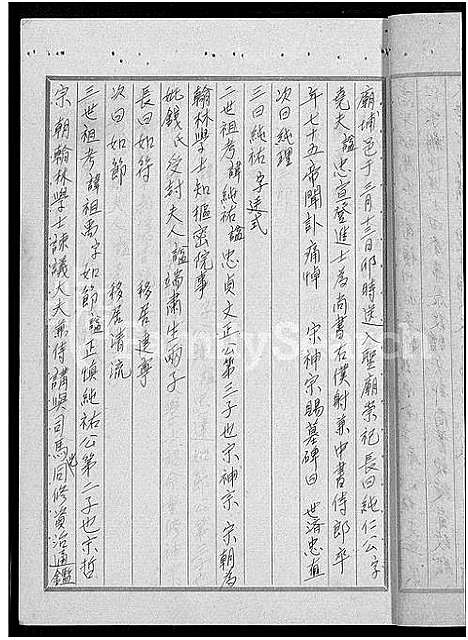 廟埔邑于三月十三日卯時送入聖廟崇祀長曰純仁公字
堯夫諡忠宣登進士為尚書右僕射兼中書侍郎卒
年七十五帝聞訃痛悼 宋神宗賜墓碑曰 世濟忠直
次曰純理
三曰純祐字達式
二世祖考諱純祐諡忠貞文正公第三子也宗神宗 宋朝為
翰林學士知樞密院事
妣錢氏受封夫人諡端肅生兩子
長曰如符 移居建寧
次曰如節 移居清流
三世祖考諱祖禹字如節諡正慎純祐公第二子也宋哲
宗朝翰林學士諫議大夫兼侍講與司馬光同修資治通鑑